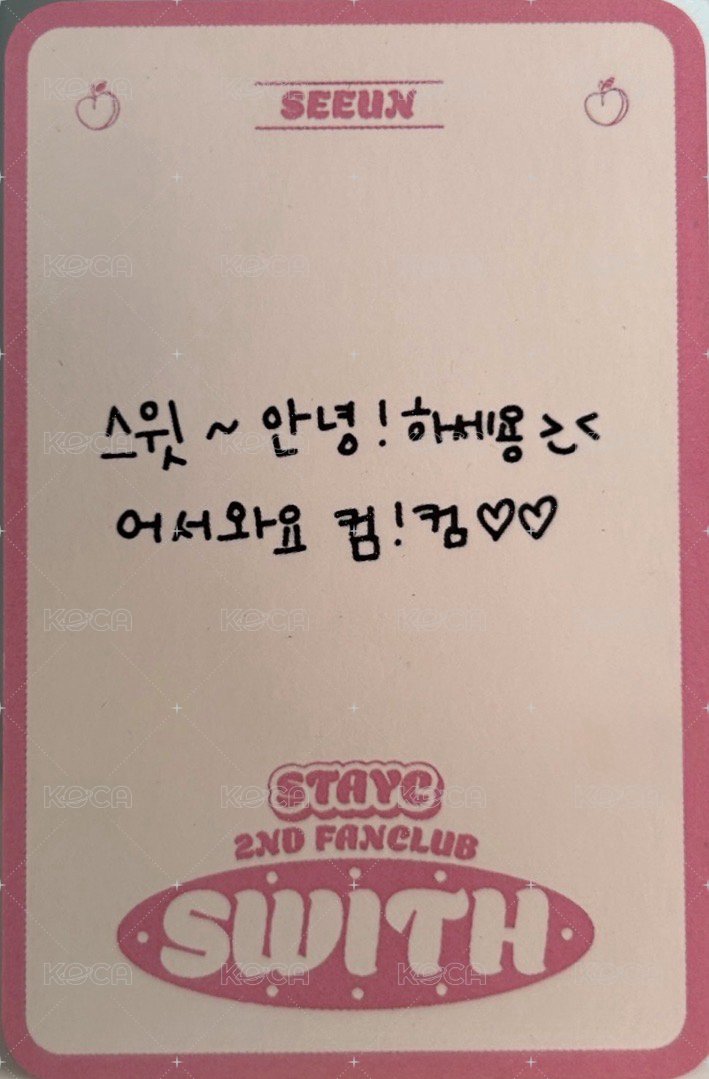 SEEUN
스윗 ~ 안녕! 하세용 ≥ِ<
어서와요 컴!컴♡♡
STAYC
2ND FANCLUB
SWITH
KOCA